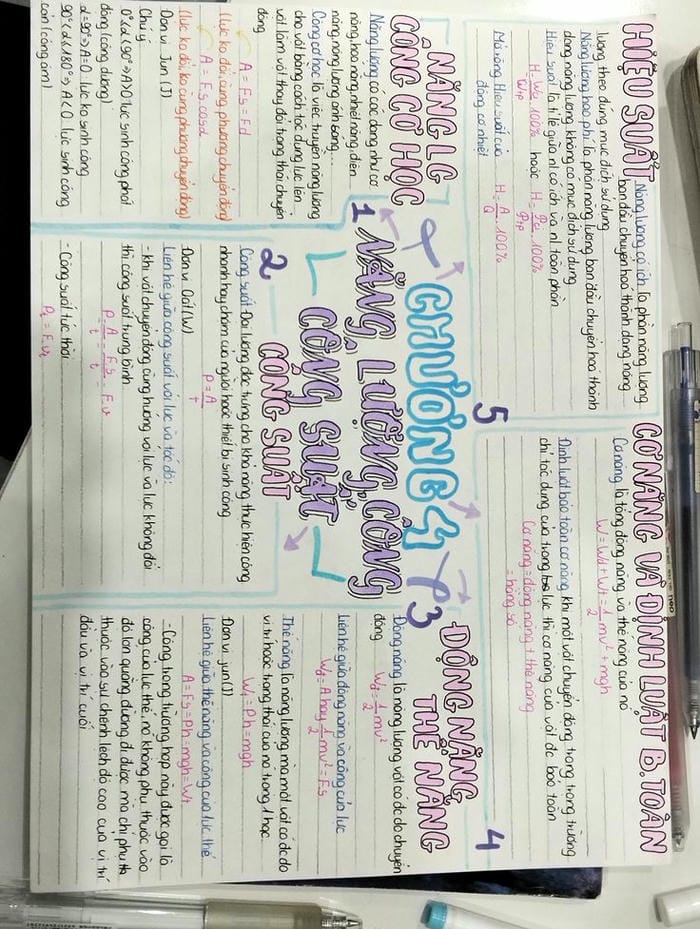 CHƯƠNG 4
NĂNG LƯỢNG, CÔNG,
CÔNG SUẤT
1
NĂNG LG
CÔNG CƠ HỌC
Năng lượng có các dạng như cơ
năng, hóa năng, nhiệt năng, điện
năng, năng lượng ánh sáng...
Công cơ học là việc truyền năng lượng
cho vật bằng cách tác dụng lực lên
vật làm vật thay đổi trạng thái chuyển
động
A = Fs = Fd
(lực ko đổi, cùng phương chuyển động)
A = F.s cosα
(lực ko đổi, ko cùng phương chuyển động)
Đơn vị Jun (J)
Chú ý
0° ≤ α < 90° ⇒ A > 0 lực sinh công phát
động (công dương)
α = 90° ⇒ A = 0 lực ko sinh công
90° < α ≤ 180° ⇒ A < 0 lực sinh công
cản (công âm)
2
CÔNG SUẤT
Công suất: Đại lượng đặc trưng cho khả năng thực hiện công
nhanh hay chậm của người hoặc thiết bị sinh công
P = A/t
Đơn vị Oát (W)
Liên hệ giữa công suất với lực và tốc độ:
- khi vật chuyển động cùng hướng với lực và lực không đổi
thì công suất trung bình
P = A/t = F.s/t = F.v
- Công suất tức thời
Pt = F.vt
3
ĐỘNG NĂNG,
THẾ NĂNG
Động năng là năng lượng vật có đc do chuyển
động Wđ = 1/2 mv²
Liên hệ giữa động năng và công của lực
Wđ = A hay 1/2 mv² = F.s
Thế năng là năng lượng mà một vật có đc do
vị trí hoặc trạng thái của nó trong
Wt = Ph = mgh
Đơn vị jun (J)
Liên hệ giữa thế năng và công của lực thế
A = Fs = Ph = mgh = Wt
- Công trong trường hợp này được gọi là
công của lực thế, nó không phụ thuộc vào
độ lớn quãng đường đi được mà chỉ phụ th
thuộc vào sự chênh lệch độ cao của vị trí
đầu và vị trí cuối
4
CƠ NĂNG VÀ ĐỊNH LUẬT B.TOÀN
Cơ năng là tổng động năng và thế năng của nó
W = Wđ + Wt = 1/2 mv² + mgh
Định luật bảo toàn cơ năng khi một vật chuyển động trong trọng trường
chỉ tác dụng của trọng lực thì cơ năng của vật đc bảo toàn
Cơ năng = động năng + thế năng
= hằng số
5
HIỆU SUẤT
Năng lượng có ích là phần năng lượng
ban đầu chuyển hoá thành dạng năng
lượng theo đúng mục đích sử dụng
Năng lượng hao phí là phần năng lượng ban đầu chuyển hoá thành
dạng năng lượng không có mục đích sử dụng
Hiệu suất là tỉ lệ giữa nl có ích và nl toàn phần
H = Wci/Wtp .100% hoặc H = Pci/Ptp .100%
Mở rộng Hiệu suất của
động cơ nhiệt
H = A/Q .100%